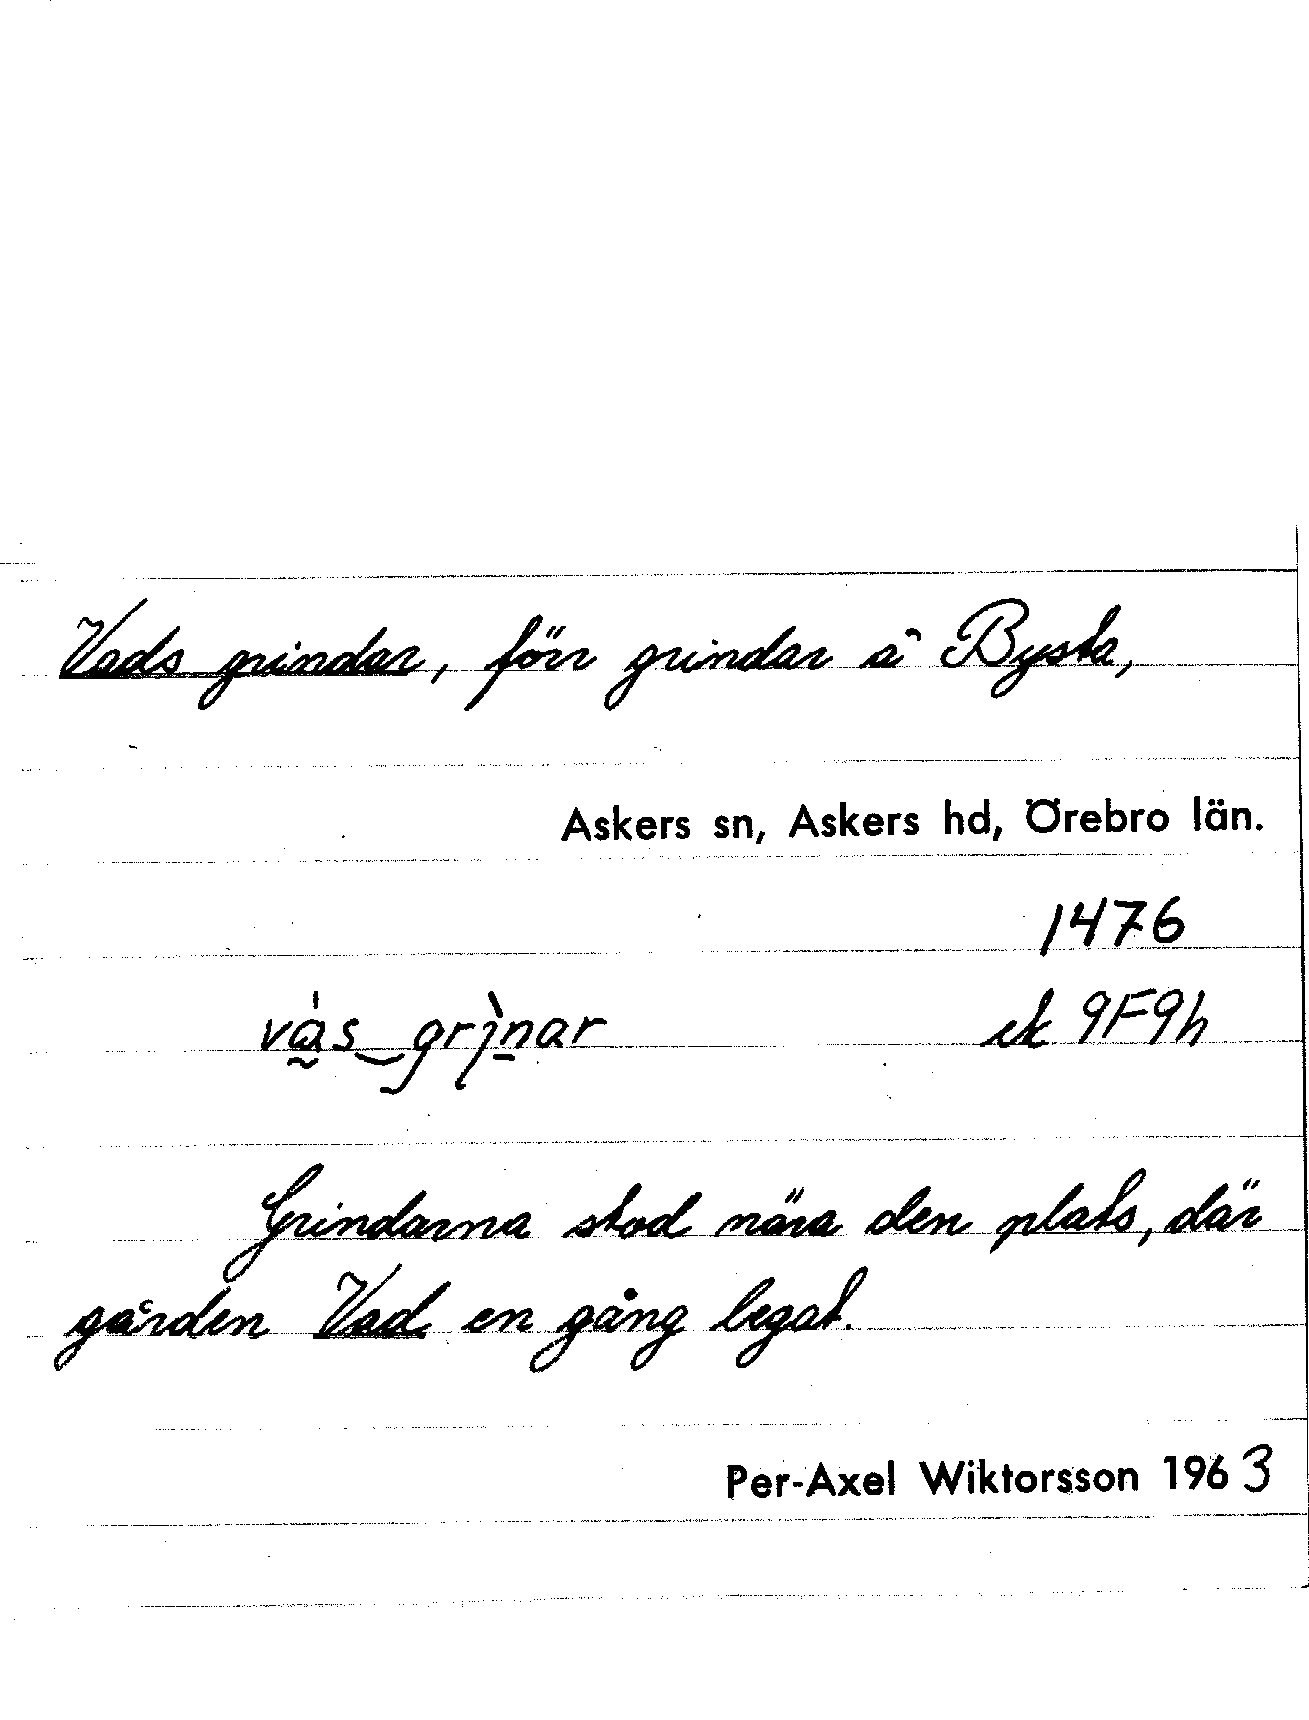 Vads grindar, förr grindar å Bysta,
Askers sn, Askers hd, Örebro län.
1476
vás_grìnar ek 9F9h
Grindarna stod nära den plats, där
gården Vad en gång legat.
Per-Axel Wiktorsson 1963